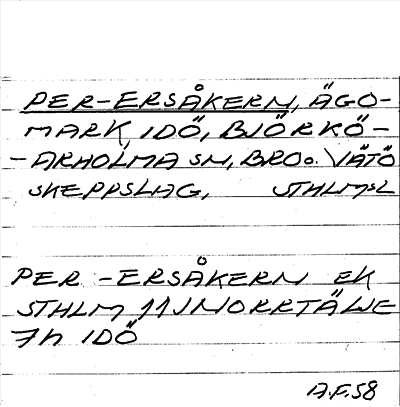 PER-ERSÅKERN, ÄGO-
MARK, IDÖ, BJÖRKÖ-
-ARHOLMA SN, BRO o. VÄTÖ
SKEPPSLAG, STHLMSL
PER-ERSÅKERN EK
STHLM 11J NORRTÄLJE
7h IDÖ
A.F.58